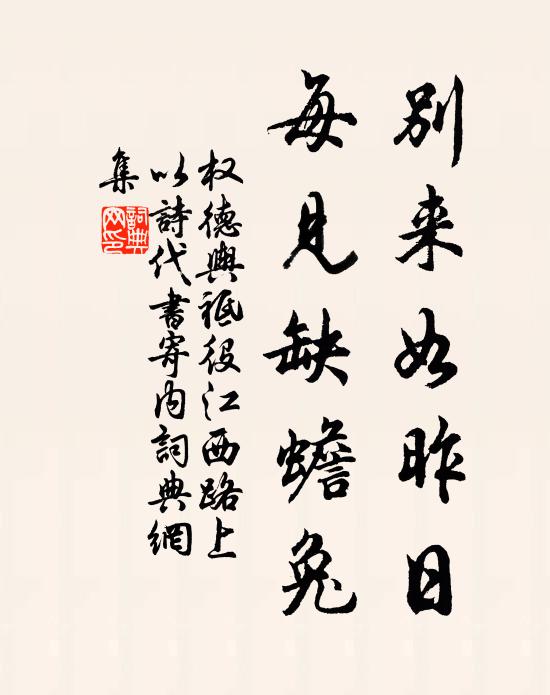 别来如昨日
每见缺蟾兔
权德舆祗役江西路上
以詩代書寄内詞典網
集
詞典
网印